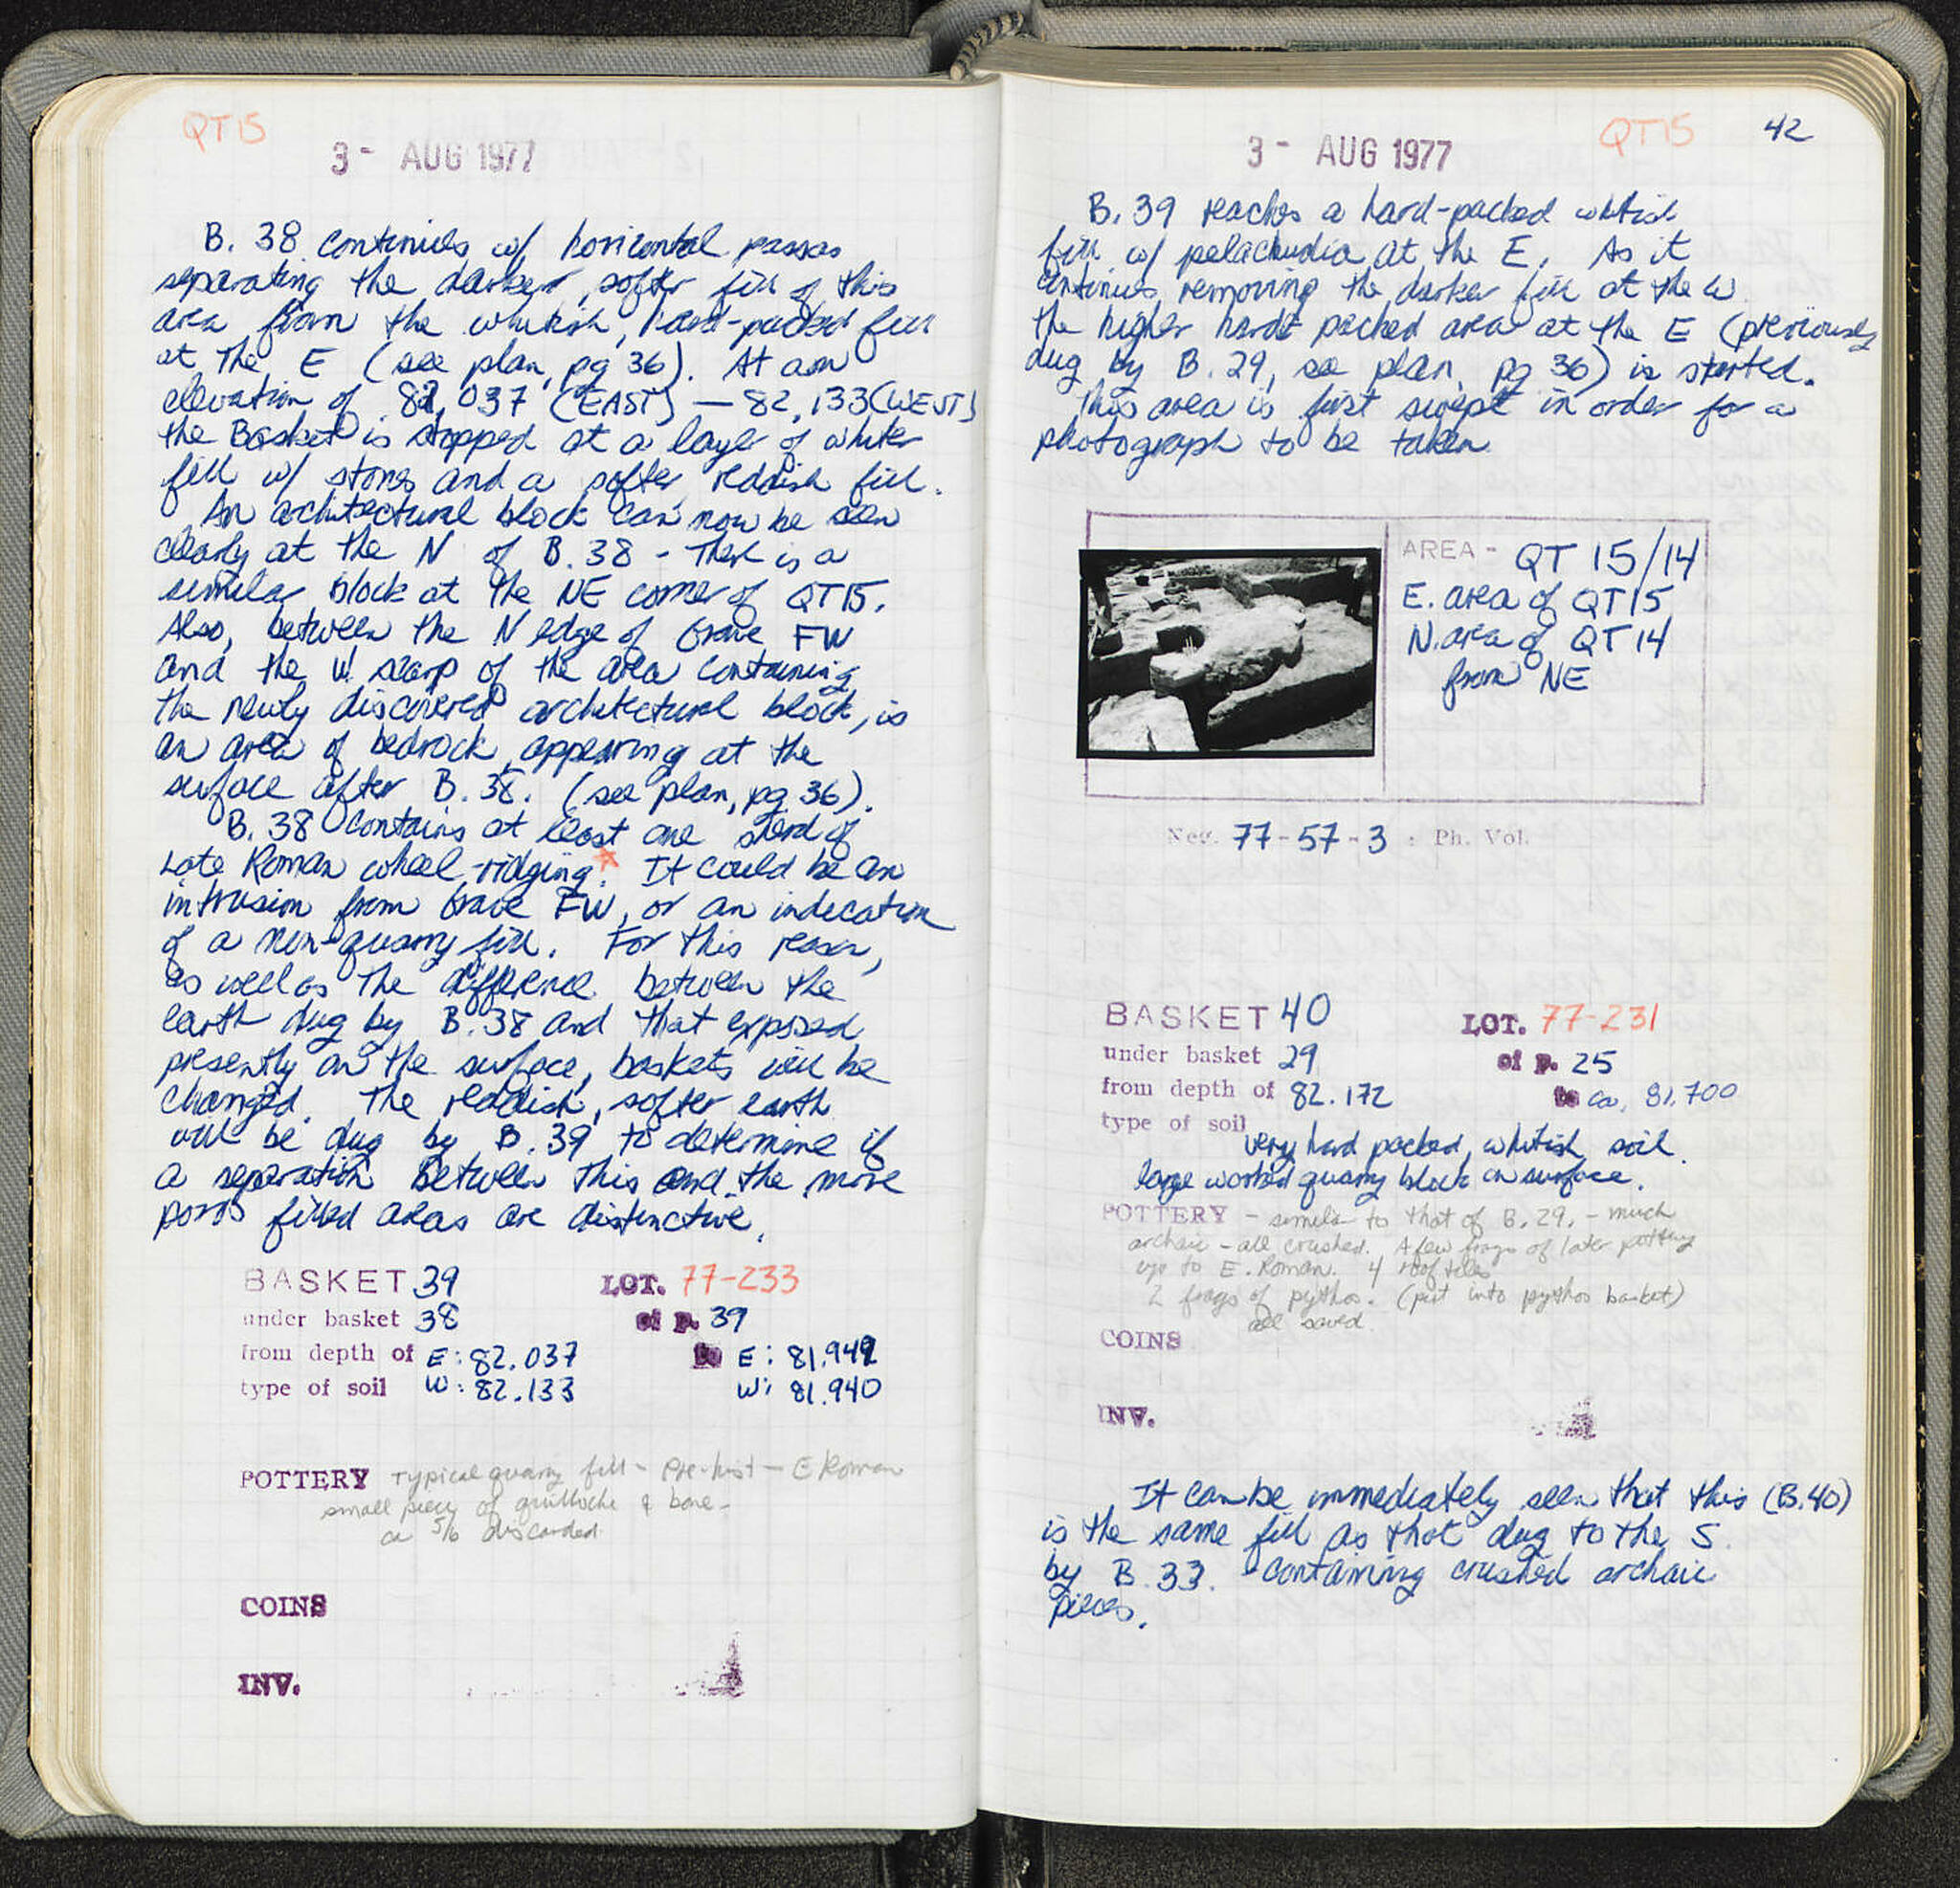 QT15
3 - AUG 1977
B. 38 continues w/ horizontal passes
separating the darker, softer fill of this
area from the whitish, hard-packed fill
at the E (see plan, pg 36). At an
elevation of 82,037 (EAST) — 82,133 (WEST)
the Basket is stopped at a layer of white
fill w/ stones and a softer, reddish fill.
An architectural block can now be seen
clearly at the N of B. 38 - There is a
similar block at the NE corner of QT15.
Also, between the N edge of Grave FW
and the W scarp of the area containing
the newly discovered architectural block, is
an area of bedrock, appearing at the
surface after B. 38. (see plan, pg 36).
B. 38 contains at least one sherd of
Late Roman wheel-ridging. It could be an
intrusion from Grave FW, or an indication
of a non-quarry fill. For this reason,
as well as the difference between the
earth dug by B. 38 and that exposed
presently on the surface, baskets will be
changed. The reddish, softer earth
will be dug by B. 39 to determine if
a separation between this and the more
poros filled areas are distinctive.
BASKET 39 LOT. 77-233
under basket 38 of p. 39
from depth of E: 82.037 to E: 81.949
type of soil W: 82.133 W: 81.940
POTTERY Typical quarry fill - Pre-hist - E Roman
small piece of guilloche & bone -
ca 5% discarded
COINS
INV.
QT15 42
3 - AUG 1977
B. 39 reaches a hard-packed whitish
fill w/ pelachudia at the E. As it
continues removing the darker fill at the W
the higher hard packed area at the E (previously
dug by B. 29, see plan, pg 36) is started.
This area is first swept in order for a
photograph to be taken.
AREA - QT 15/14
E. area of QT15
N. area of QT 14
from NE
Neg. 77-57-3 : Ph. Vol.
BASKET 40 LOT. 77-231
under basket 29 of p. 25
from depth of 82.172 to ca. 81.700
type of soil
very hard packed, whitish soil.
large worked quarry block on surface.
POTTERY - similar to that of B. 29. - much
archaic - all crushed. A few frags of later pottery
up to E. Roman. 4 roof tiles
2 frags of pythos. (put into pythos basket)
all saved.
COINS
INV.
It can be immediately seen that this (B.40)
is the same fill as that dug to the S
by B. 33. containing crushed archaic
pieces.